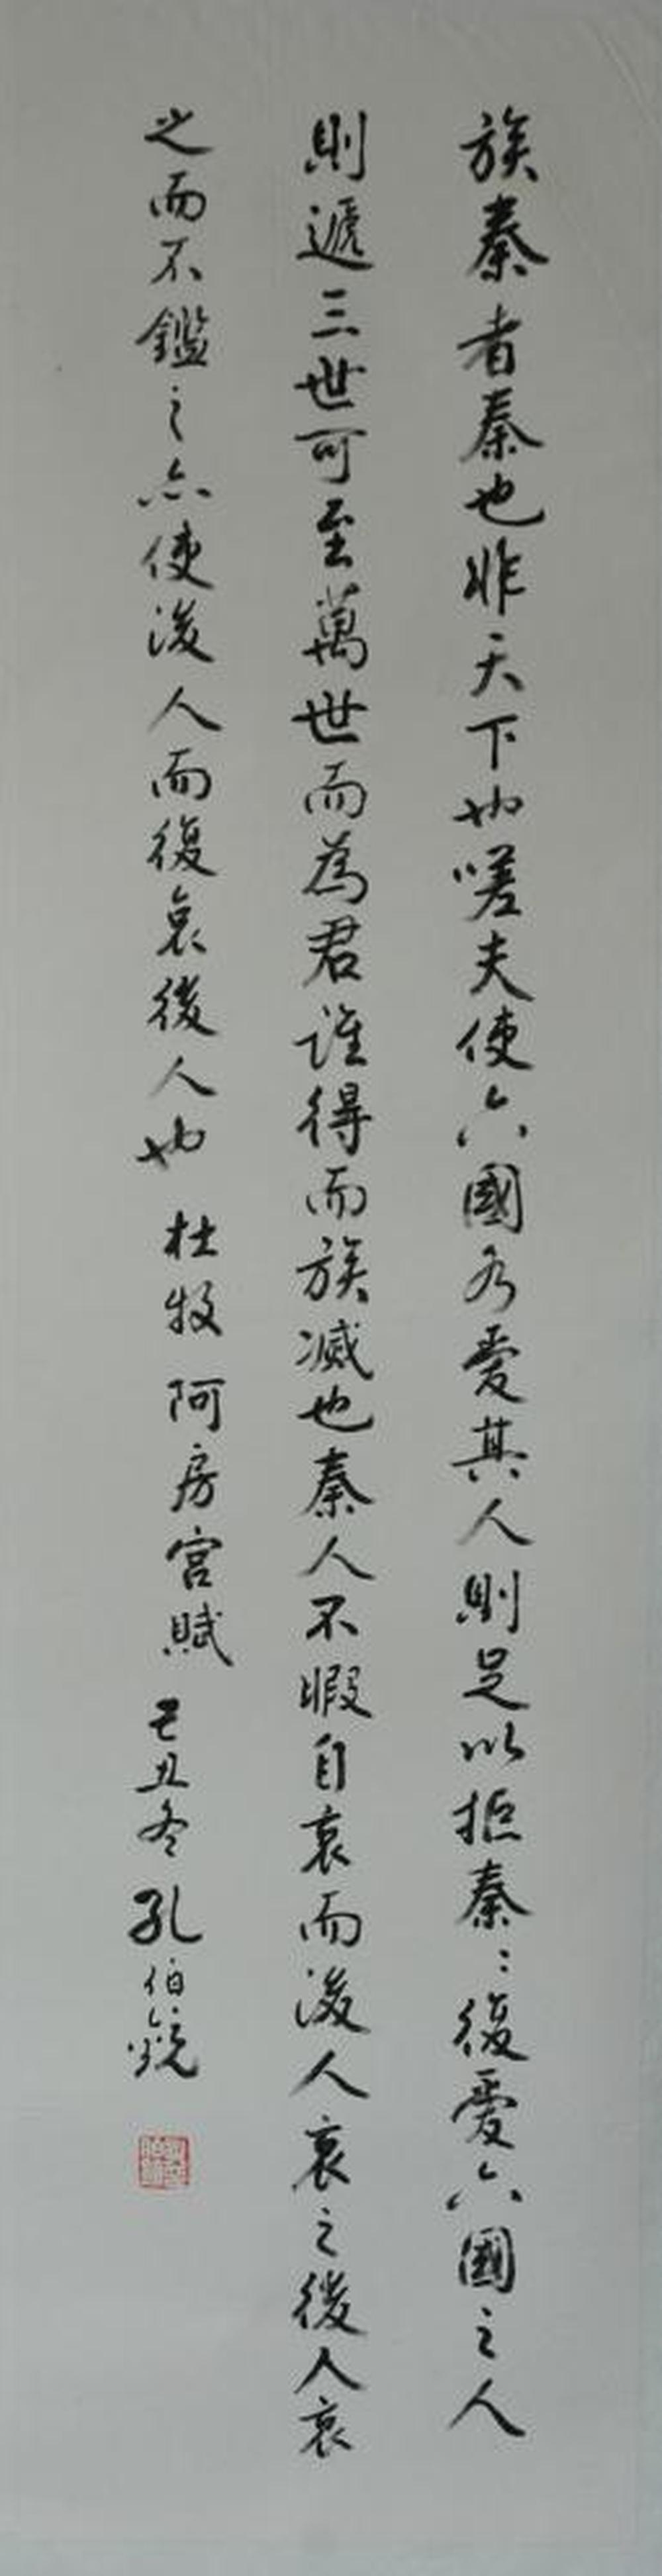 族秦者秦也非天下也嗟夫使六國各愛其人則足以拒秦：復愛六國之人
則遞三世可至萬世而為君誰得而族滅也秦人不暇自哀而後人哀之後人哀
之而不鑑之亦使後人而復哀後人也 杜牧 阿房宮賦 己丑冬 孔伯